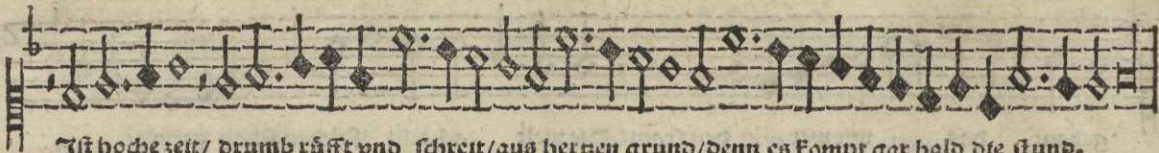 Ist hoche zeit/ drumb rüfft vnd schreit/aus hertzen grund/denn es kompt gar bald die stund.